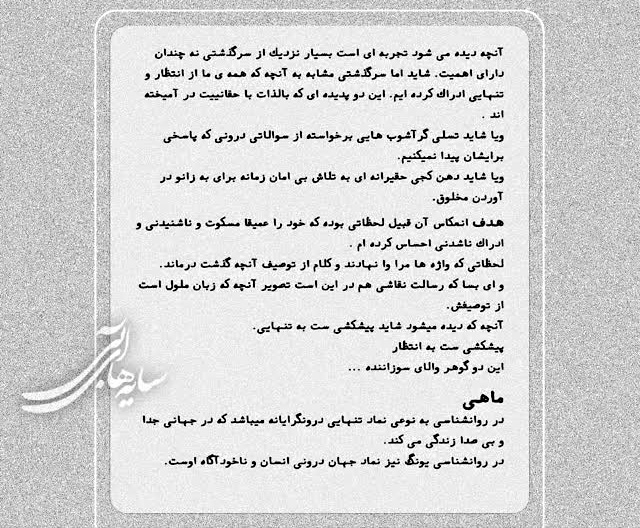 آنچه دیده می شود تجربه ای است بسیار نزدیك از سرگذشتی نه چندان
دارای اهمیت. شاید اما سرگذشتی مشابه به آنچه که همه ی ما از انتظار و
تنهایی ادراك کرده ایم. این دو پدیده ای که بالذات با حقانییت در آمیخته
اند .
ویا شاید تسلی گر آشوب هایی برخواسته از سوالاتی درونی که پاسخی
برایشان پیدا نمیکنیم.
ویا شاید دهن کجی حقیرانه ای به تلاش بی امان زمانه برای به زانو در
آوردن مخلوق.
هدف انعکاس آن قبیل لحظاتی بوده که خود را عمیقا مسکوت و ناشنیدنی و
ادراك ناشدنی احساس کرده ام .
لحظاتی که واژه ها مرا وا نهادند و کلام از توصیف آنچه گذشت درماند.
و ای بسا که رسالت نقاشی هم در این است تصویر آنچه که زبان ملول است
از توصیفش.
آنچه که دیده میشود شاید پیشکشی ست به تنهایی.
پیشکشی ست به انتظار
این دو گوهر والای سوزاننده ...
سایه های آبی
ماهی
در روانشناسی به نوعی نماد تنهایی درونگرایانه میباشد که در جهانی جدا
و بی صدا زندگی می کند.
در روانشناسی یونگ نیز نماد جهان درونی انسان و ناخودآگاه اوست.